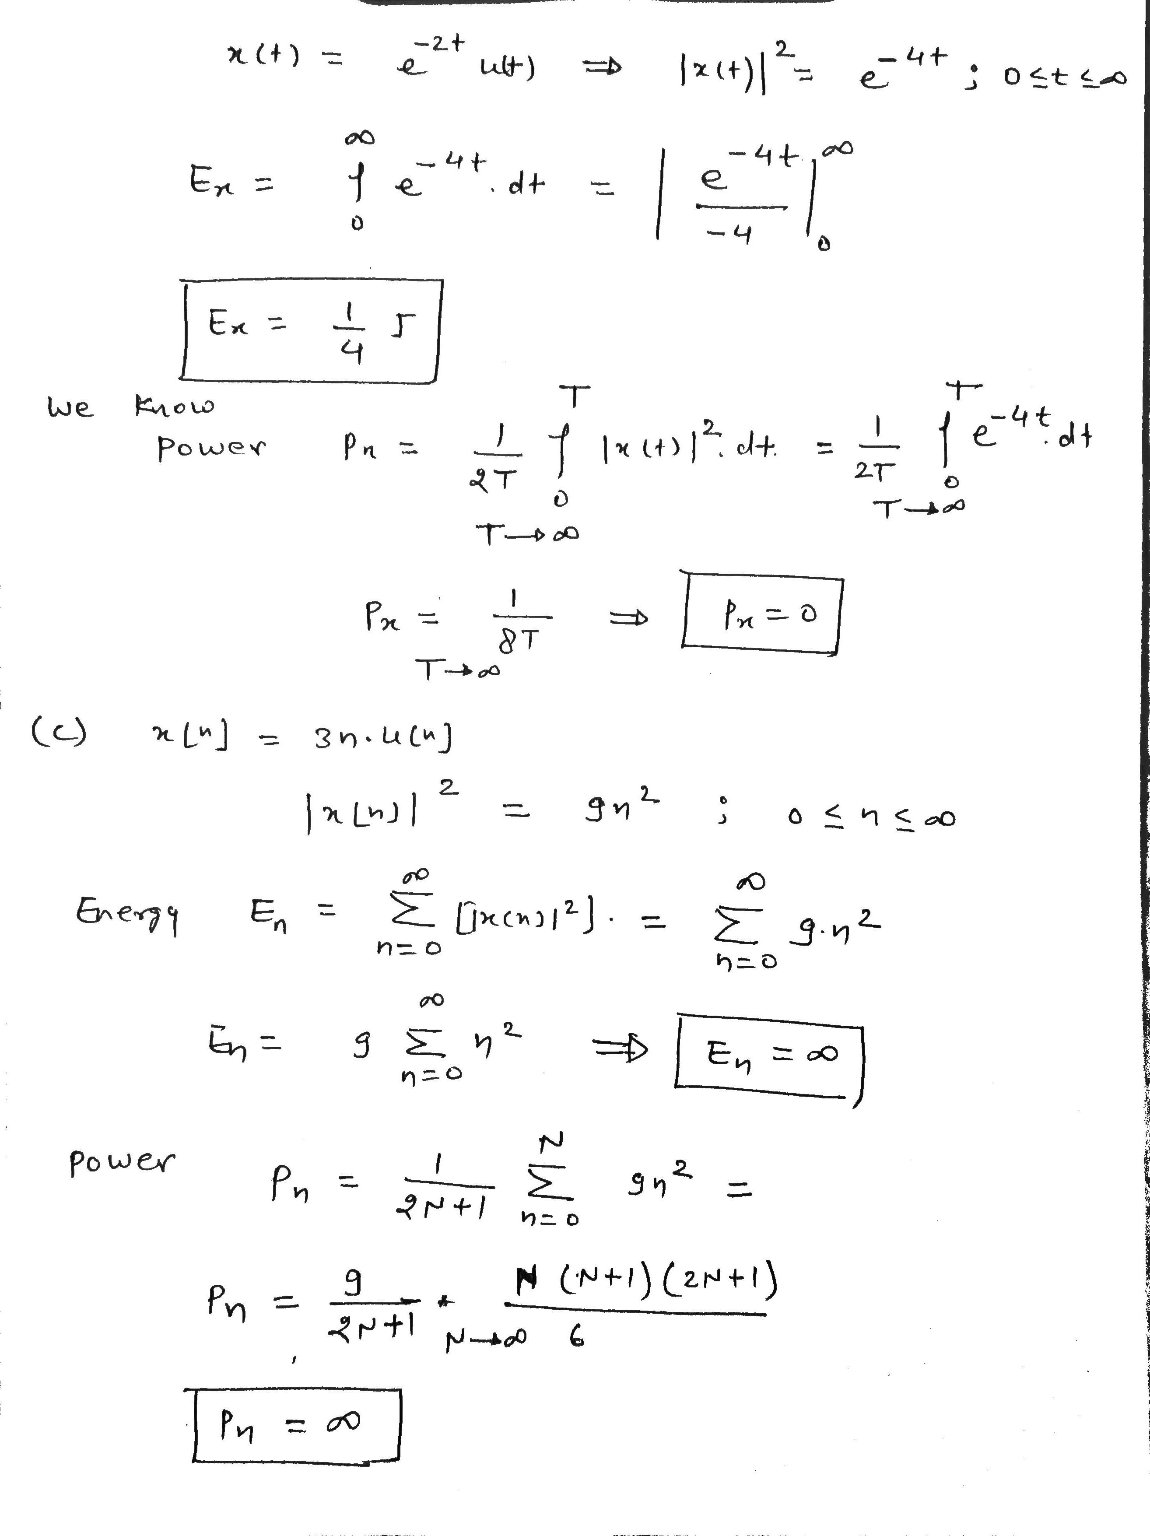 x(t) = e^{-2t} u(t) ⇒ |x(t)|^2 = e^{-4t} ; 0 ≤ t ≤ ∞
Ex = ∫_0^∞ e^{-4t}. dt = | e^{-4t} / -4 |_0^∞
Ex = 1/4 J
We Know
Power Px = 1/2T ∫_0^T |x(t)|^2. dt. = 1/2T ∫_0^T e^{-4t}. dt
T→∞ T→∞
Px = 1/8T ⇒ Px = 0
T→∞
(c) x[n] = 3n.u[n]
|x[n]|^2 = 9n^2 ; 0 ≤ n ≤ ∞
Energy En = Σ_{n=0}^∞ [|x(n)|^2]. = Σ_{n=0}^∞ 9.n^2
En = 9 Σ_{n=0}^∞ n^2 ⇒ En = ∞
Power Pn = 1/2N+1 Σ_{n=0}^N 9n^2 =
Pn = 9/2N+1 * N (N+1) (2N+1) / 6
N→∞
Pn = ∞